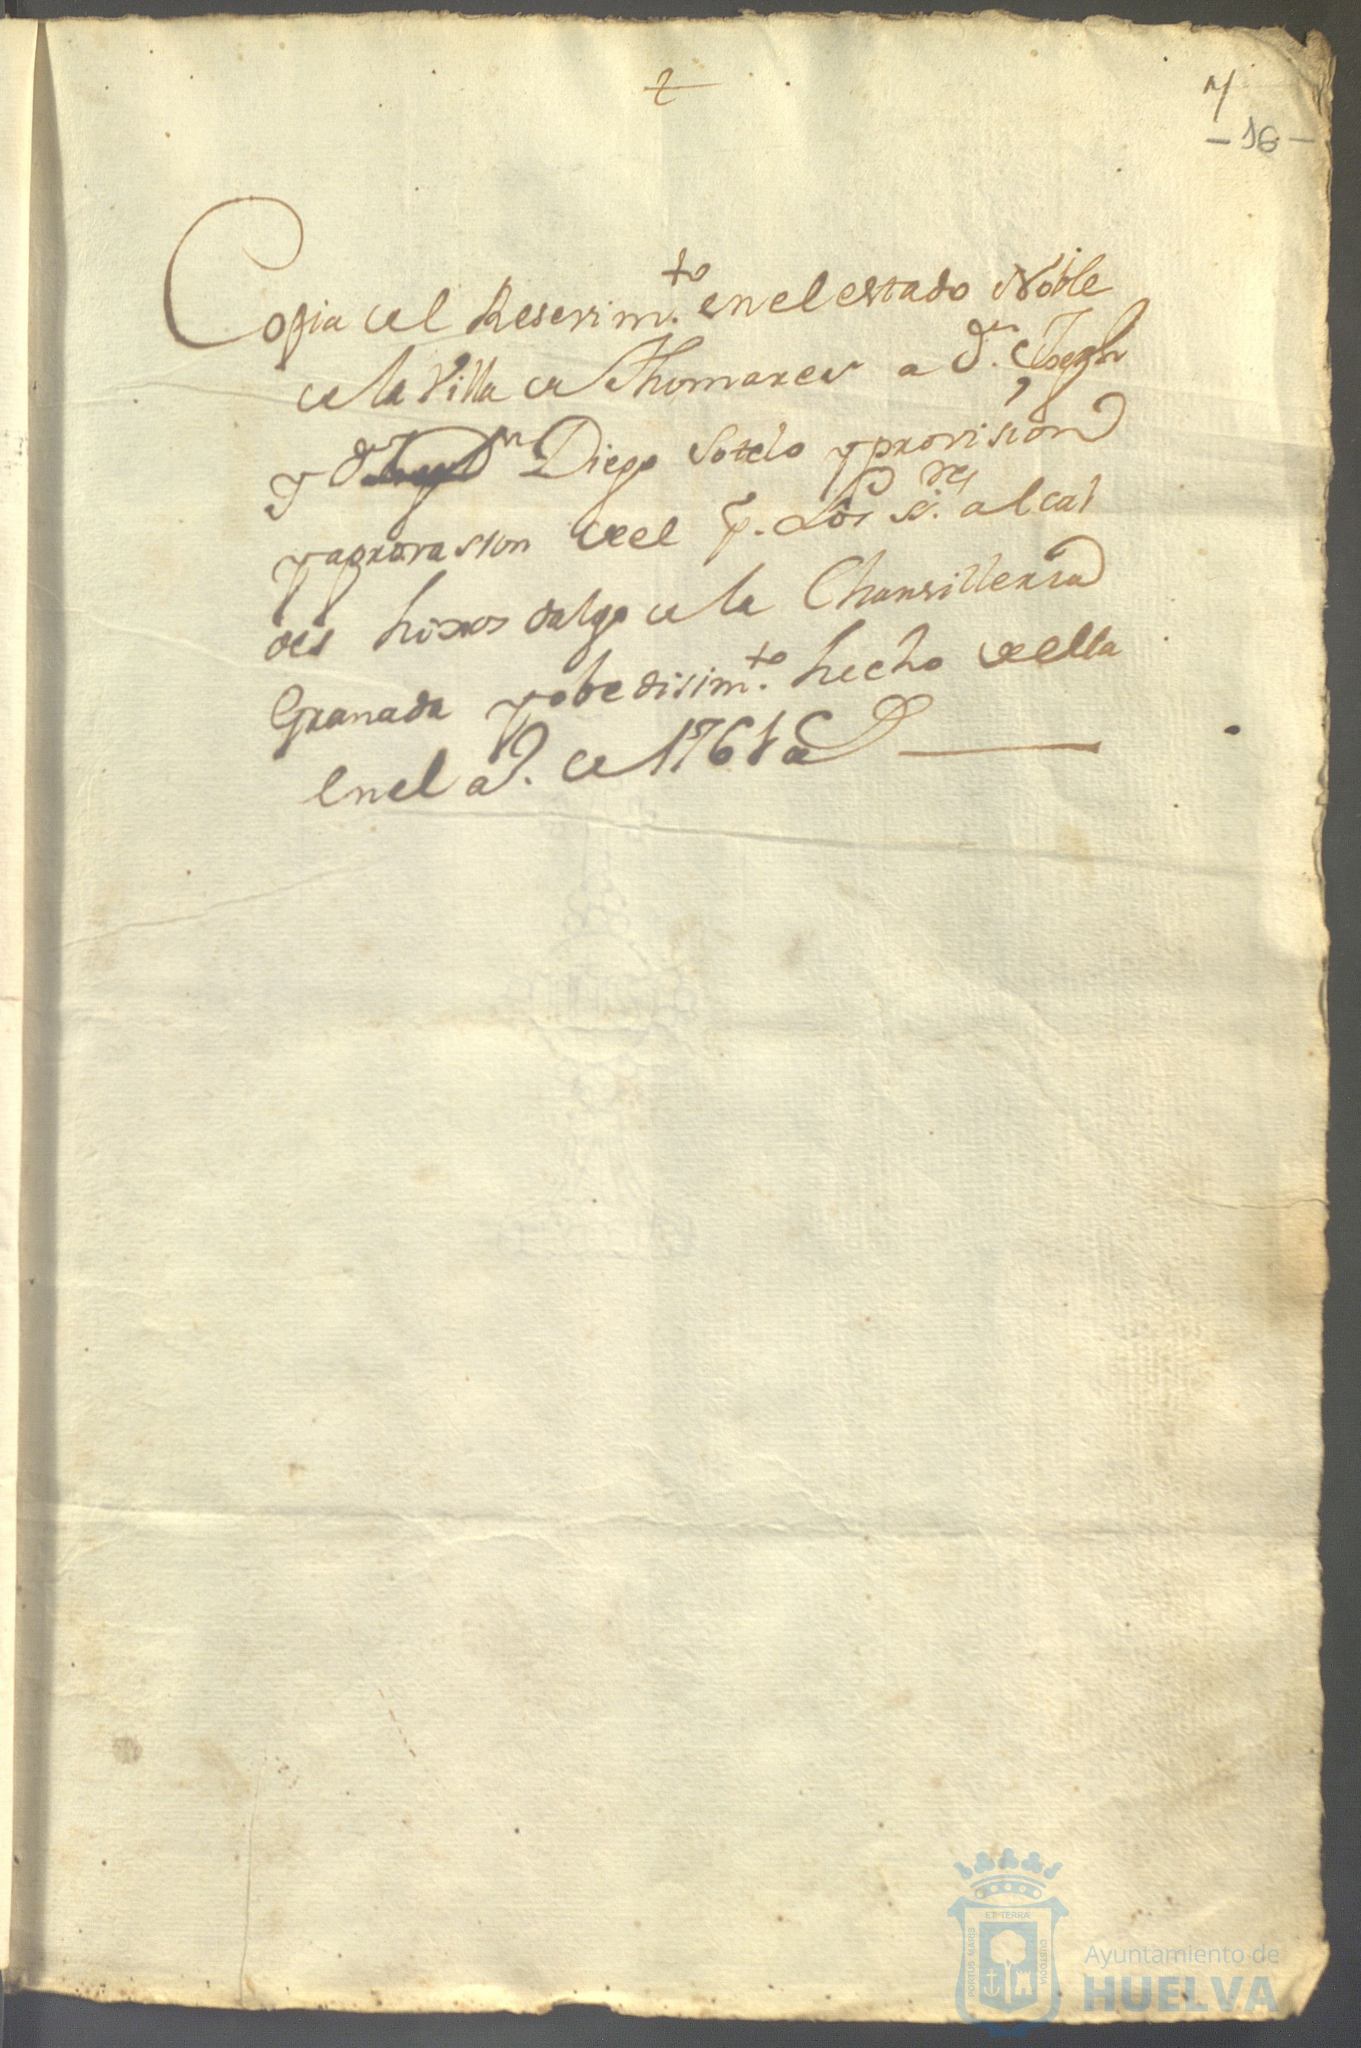 7
-16-
Copia del Reseuim.to en el estado Noble
de la Villa de Thomares a d.n Joseph
y Dn Diego Sotelo y provision
y aprovasion de el p. Los S.res alcal
des hixos dalgo de la Chansilleria
Granada y obedisim.to hecho de ella
en el a. de 1761 a
ET TERRA
PORTUS MARIS
CUSTODIA
Ayuntamiento de
HUELVA